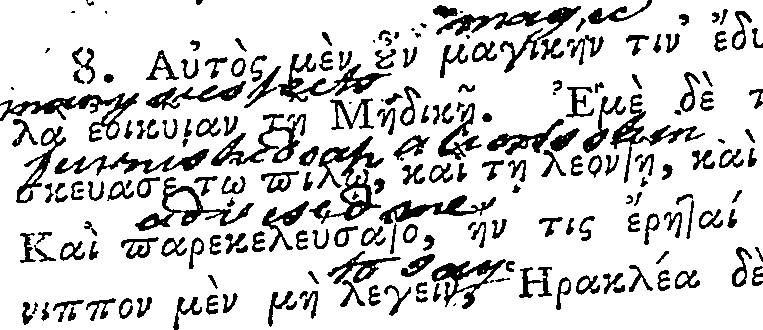 magic
8. Αὐτὸς μὲν ȣ̓ν μαγικήν τιν' ἔδυ
many respects
λὰ ἐοικυιαν τῇ Μηδικῇ. Ἐμὲ δὲ τ
furnished cap a lions skin
σκευασε τῳ πιλῳ, καὶ τῃ λεοντῃ, καὶ
advised me
Καὶ παρεκελευσατο, ἠν τις ἔρηταί
to say
νιππον μὲν μὴ λεγειν, Ἡρακλέα δὲ